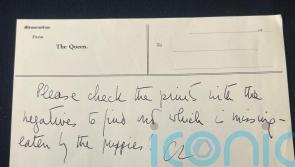 Memorandum
From
To
The Queen.
Please check the prints with the
negatives to find out which is missing –
eaten by the puppies
iconic